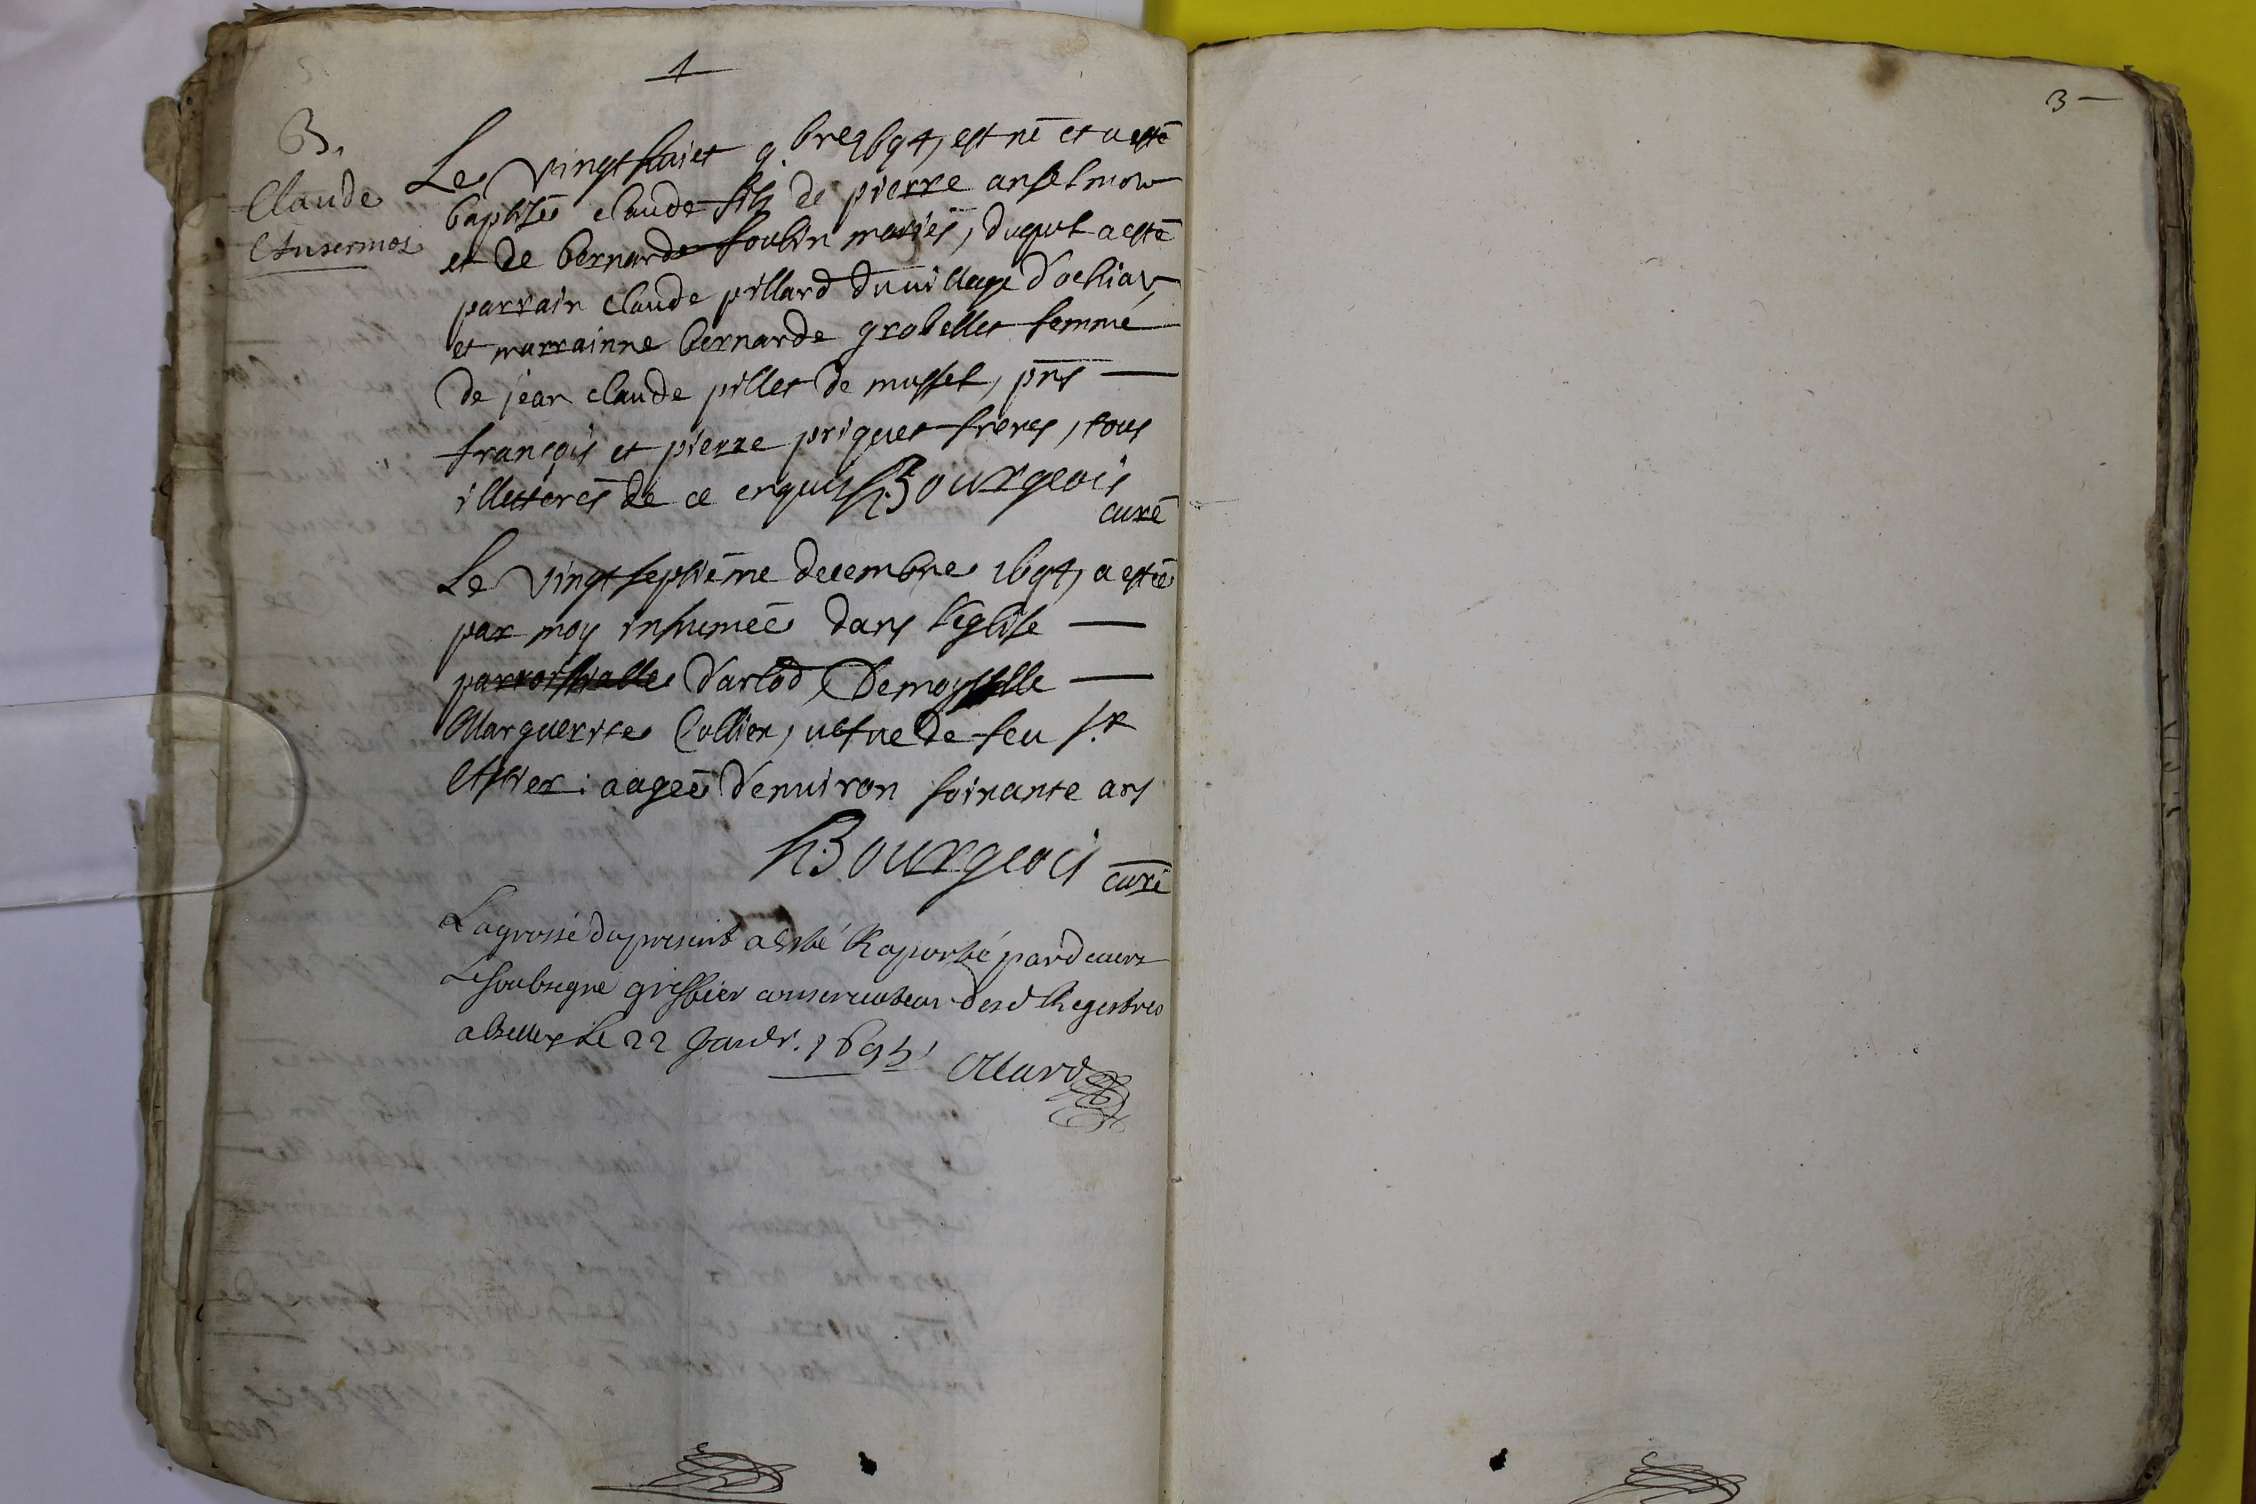 1
B.
Claude
Ansermos
Le vingt huiet 9.bre 1694, est né et a esté
baptisé claude fils de pierre anselmoz
et de bernarde foulin mariés, duquel a esté
parrain claude pillard du village d'ochiaz
et marrainne bernarde grobellet femme
de jean claude pillet de mussel, pnts
françois et pierre priquet freres, tous
illetterés de ce enquis h. Bourgeois
curé
Le vingt septiéme decembre 1694, a esté
par moy inhumeé dans l'eglise
parroissialle d'arlod, Demoyselle
Marguerite Collier, uefue de feu sr.
aageé d'enuiron soixante ans
h. Bourgeois curé
La grosse du present a esté Raporté pardeuers
Le soubsigné greffier conseruateur desd Registres
a belley Le 22 Januier. 1695
3